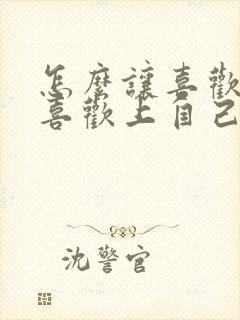 怎麼讓喜歡
喜歡上自己
沈警官